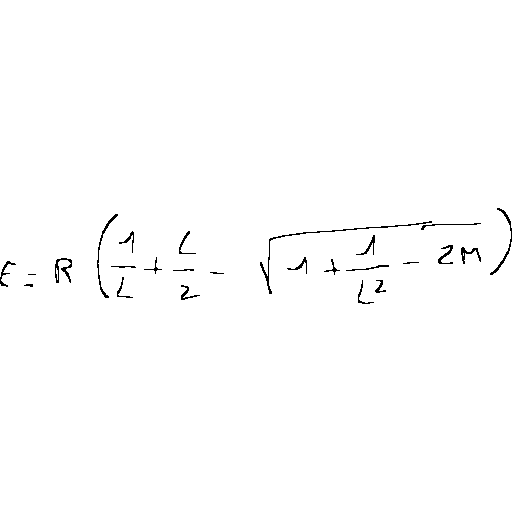 E = R \left( \frac{1}{L} + \frac{L}{2} - \sqrt{1 + \frac{1}{L^2} - 2M} \right)